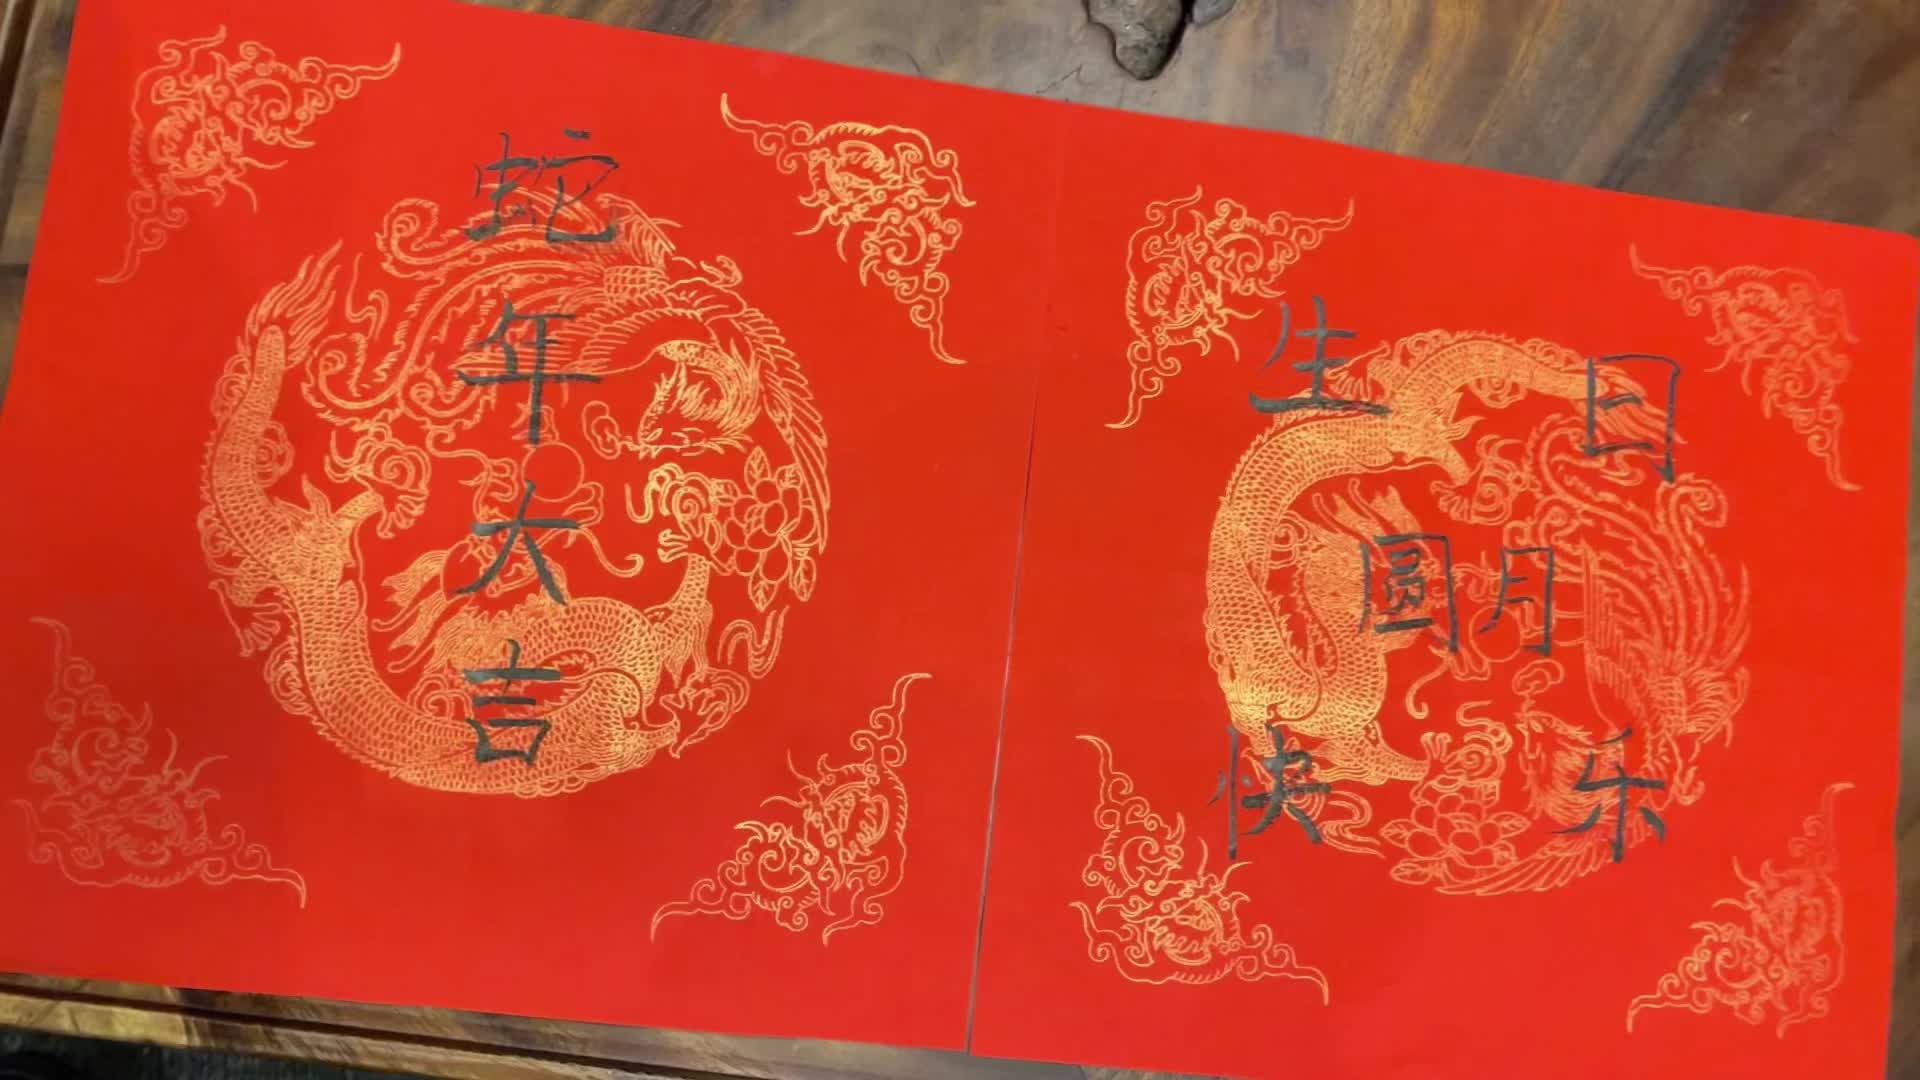 蛇年大吉
生日
圓月
快乐